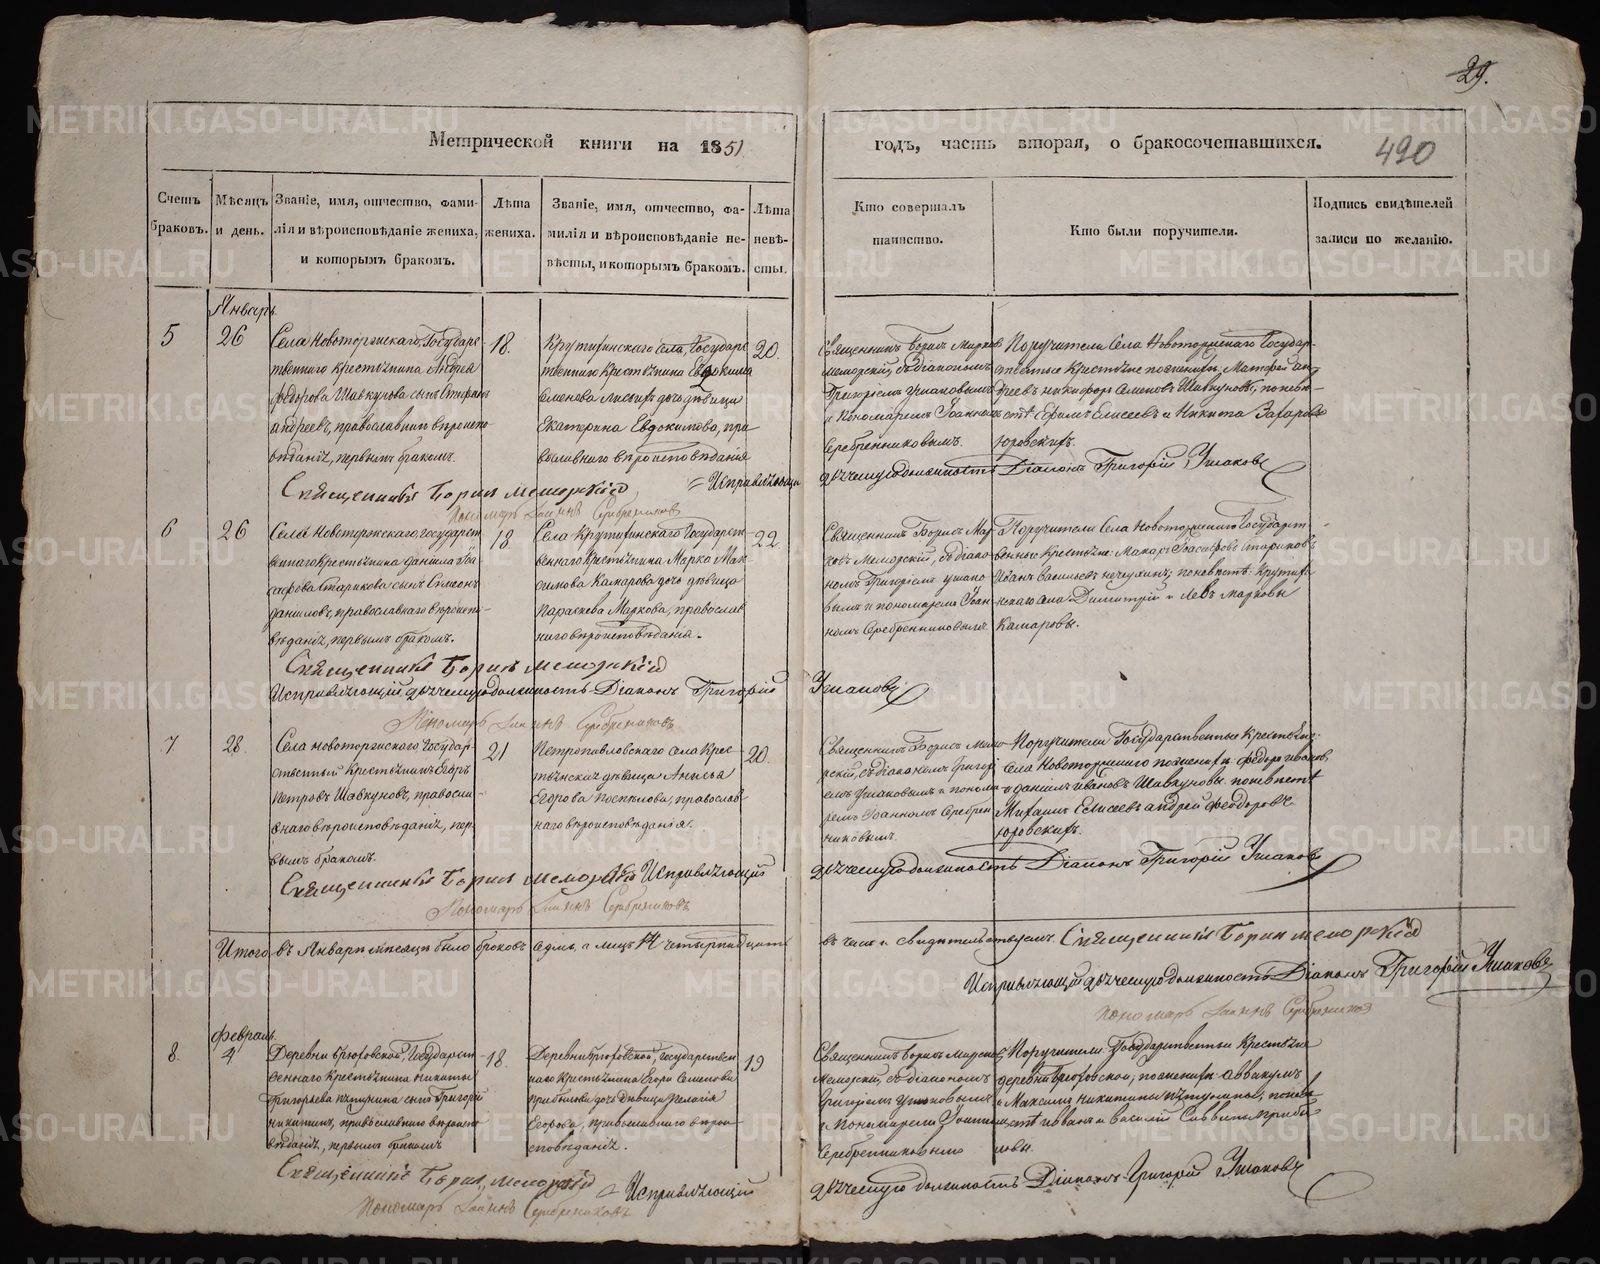 29.
Метрической книги на 1851
годъ, часть вторая, о бракосочетавшихся.
490
Счетъ браковъ.
Мѣсяцъ и день.
Званіе, имя, отчество, фами-
лія и вѣроисповѣданіе жениха,
и которымъ бракомъ.
Лѣта
жениха.
Званіе, имя, отчество, фа-
милія и вѣроисповѣданіе не-
вѣсты, и которымъ бракомъ.
Лѣта
невѣ-
сты.
Кто совершалъ
таинство.
Кто были поручители.
Подпись свидѣтелей
записи по желанію.
Январь
5
26
Села Новоторжскаго, Государс
твеннаго крестьянина Андрея
Федорова Шавкунова сынъ Стефанъ
Андреевъ, православнаго вѣроиспо-
вѣданія, первымъ бракомъ.
18.
Крутихинскаго села, Государс
твеннаго крестьянина Евдокима
Семенова дочь дѣвица
Екатерина Евдокимова, пра-
вославнаго вѣроисповѣданія
20.
Священникъ Борисъ Марков
Меморскій, съ діакономъ
Григоріемъ Ушаковымъ
и Пономаремъ Іоанномъ
Серебренниковымъ.
Поручители Села Новоторжскаго Государ-
ственные крестьяне по женихѣ: Матфей Ан-
дреевъ и Никифоръ Семеновъ Шавкуновы, по невѣ-
стѣ: Ефимъ Елисеевъ и Никита Захаровъ
Юровскихъ.
Священникъ Борисъ Меморскій
Исправляющій
дьяческую должность Діаконъ Григорій Ушаковъ
Пономарь Іоаннъ Серебрениковъ
6
26
Села Новоторжскаго, государст
веннаго крестьянина Данила Іоа
сафова Старикова сынъ Симеонъ
Даниловъ, православнаго вѣроиспо-
вѣданія, первымъ бракомъ.
18
Села Крутихинскаго Государст
веннаго крестьянина Марка Мак
симова Камарова дочь дѣвица
Параскева Маркова, православ
наго вѣроисповѣданія.
22
Священникъ Борисъ Мар
ковъ Меморскій, съ діако
номъ Григоріемъ Ушако
вымъ и пономаремъ Іоан
номъ Серебренниковымъ
Поручители Села Новоторжскаго Государст-
венные крестьяне: Макаръ Іоасафовъ Стариковъ
Иванъ Васильевъ; по невѣстѣ: Крутихи
нскаго села Димитрій и Левъ Марковы
Камаровы.
Священникъ Борисъ Меморскій
Исправляющій дьяческую должность Діаконъ Григорій Ушаковъ
Пономарь Іоаннъ Серебрениковъ
7
28.
Села Новоторжскаго, Государ-
ственный Крестьянинъ Егоръ
Петровъ Шавкуновъ, православ-
наго вѣроисповѣданія, пер-
вымъ бракомъ.
21
Петропавловскаго села Крес
тьянская дѣвица Анисья
Егорова Поспѣлова, православ
наго вѣроисповѣданія.
20.
Священникъ Борисъ Мемо
рскій, съ діакономъ Григорі
емъ Ушаковымъ и понома
ремъ Іоанномъ Серебрен
никовымъ
Поручители Государственные Крестьяне:
Села Новоторжскаго по женихѣ Федоръ Ивановъ,
и Даниилъ Ивановъ Шавкуновы. по невѣстѣ
Михаилъ Елисеевъ Андрей Феодоровъ
Юровскихъ.
Священникъ Борисъ Меморскій Исправляющій
дьяческую должность Діаконъ Григорій Ушаковъ
Пономарь Іоаннъ Серебрениковъ
Итого въ Январѣ мѣсяцѣ было браковъ седмь, а лицъ 14 четырнадцать
въ чемъ и свидѣтельствуемъ. Священникъ Борисъ Меморскій
Исправляющій дьяческую должность Діаконъ Григорій Ушаковъ
Пономарь Іоаннъ Серебрениковъ
Февраль
8.
4
Деревни Брюховской, Государст
веннаго крестьянина Никиты
Григорьева сынъ Григорій
Никитинъ, православнаго вѣроиспо
вѣданія, первымъ бракомъ
18.
Деревни Брюховской, государствен
наго крестьянина Егора Семенова
Прибылова дочь Дѣвица Пелагія
Егорова, православнаго вѣро-
исповѣданія.
19
Священникъ Борисъ Марковъ
Меморскій, съ діакономъ
Григоріемъ Ушаковымъ
и Пономаремъ Іоанномъ
Серебренниковымъ
Поручители Государственные Крестьяне
деревни Брюховской, по женихѣ Аввакумъ
и Максимъ Никитины; по невѣ
стѣ Иванъ и Василій Саввины Прибы
ловы.
Священникъ Борисъ Меморскій
Исправляющій
дьяческую должность Діаконъ Григорій Ушаковъ
Пономарь Іоаннъ Серебрениковъ
METRIKI.GASO-URAL.RU